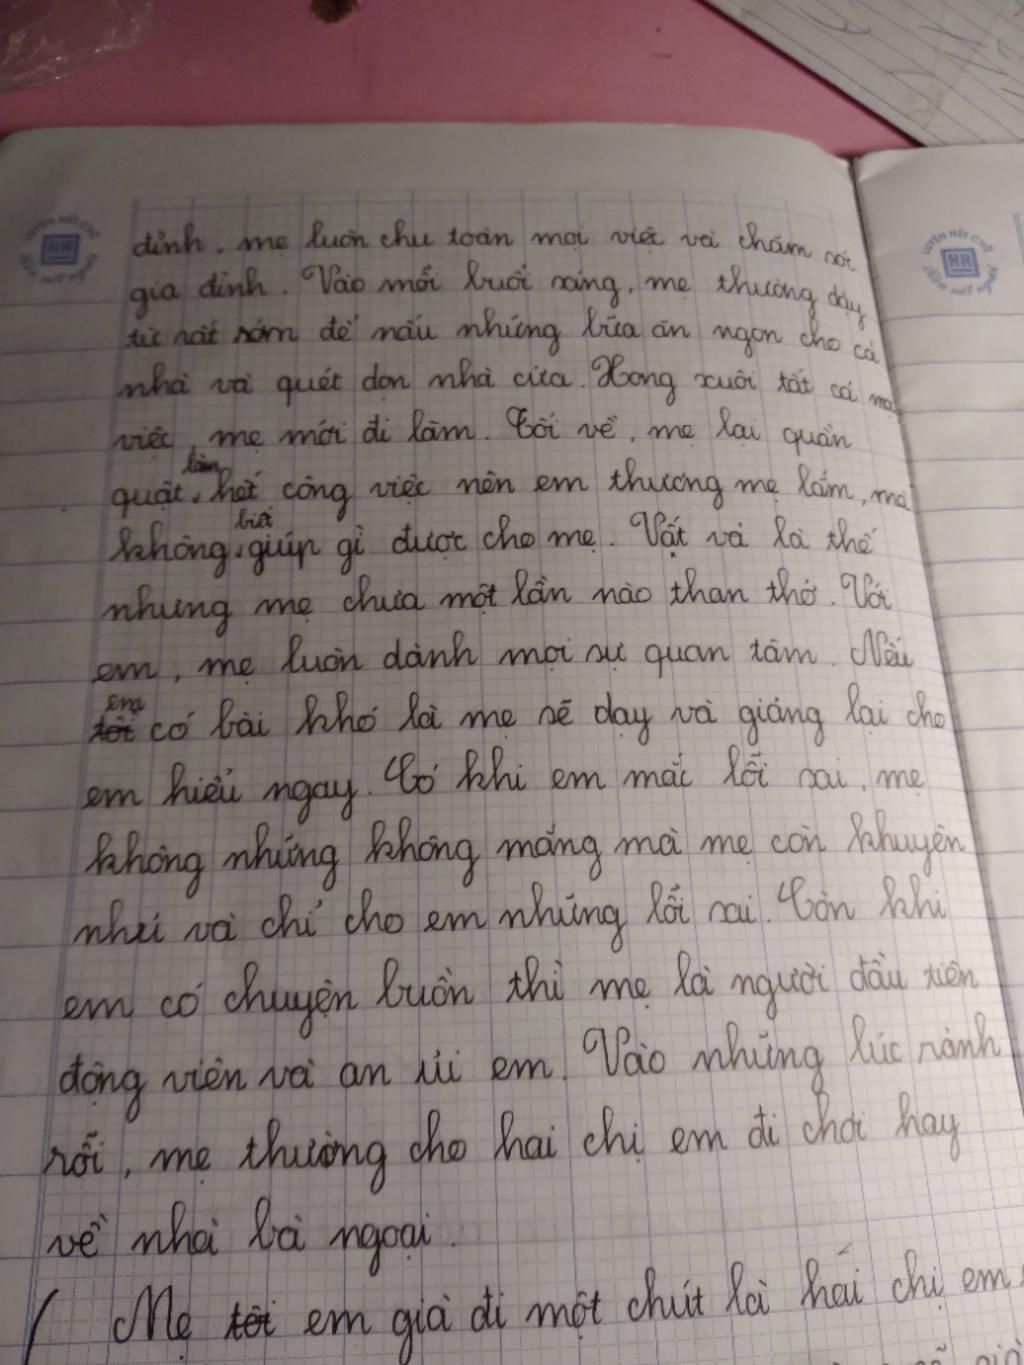 đình, mẹ luôn chu toàn mọi việc và chăm sóc
gia đình. Vào mỗi buổi sáng, mẹ thường dậy
từ rất sớm để nấu những bữa ăn ngon cho cả
nhà và quét dọn nhà cửa. Xong xuôi tất cả mọi
việc, mẹ mới đi làm. Tối về, mẹ lại quần
quật làm hết công việc nên em thương mẹ lắm, mà
không biết giúp gì được cho mẹ. Vất vả là thế
nhưng mẹ chưa một lần nào than thở. Với
em, mẹ luôn dành mọi sự quan tâm. Nếu
em có bài khó là mẹ sẽ dạy và giảng lại cho
em hiểu ngay. Có khi em mắc lỗi sai, mẹ
không những không mắng mà mẹ còn khuyên
nhủ và chỉ cho em những lỗi sai. Còn khi
em có chuyện buồn thì mẹ là người đầu tiên
động viên và an ủi em. Vào những lúc rảnh
rỗi, mẹ thường cho hai chị em đi chơi hay
về nhà bà ngoại.
Mẹ em già đi một chút là hai chị em
LUYỆN NÉT CHỮ
HH
LUYỆN NÉT CHỮ
HH